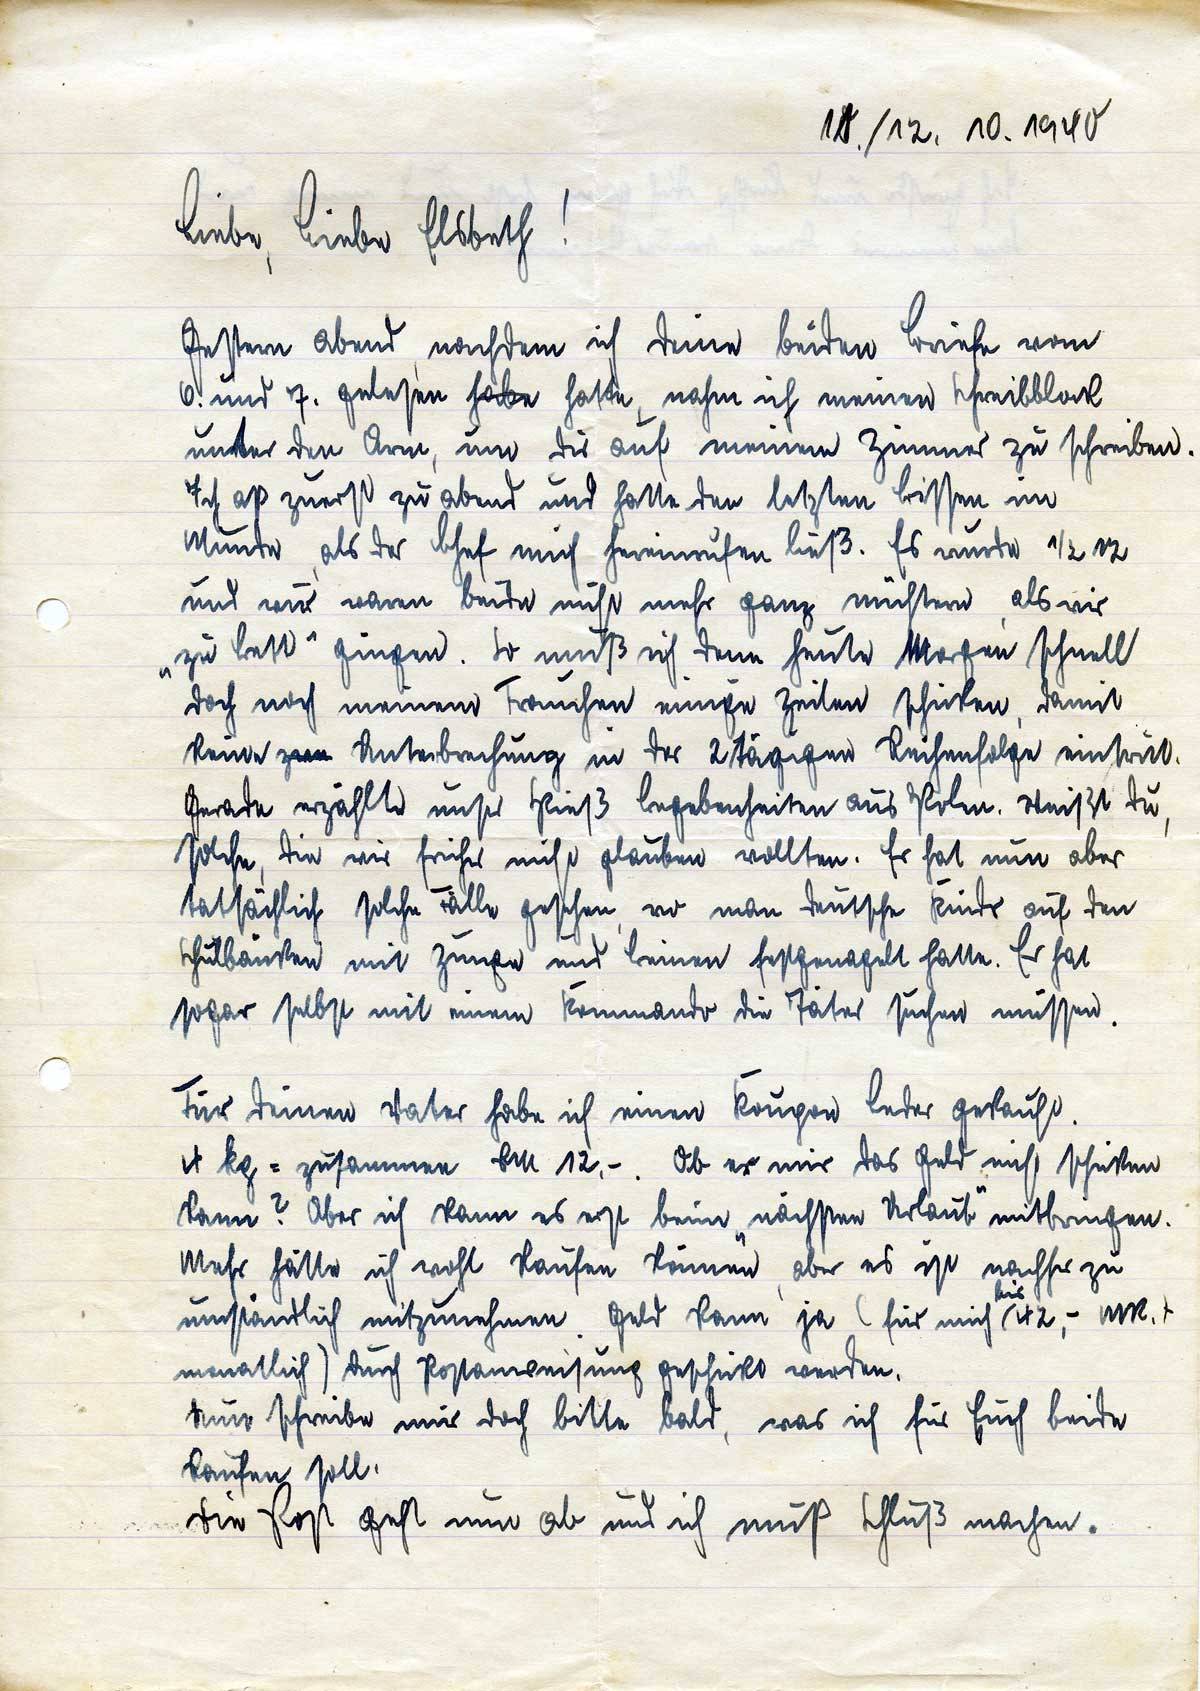 11./12. 10. 1940
Liebe, liebe Elsbeth!
Gestern abend, nachdem ich deine beiden Briefe vom
6. und 7. gelesen habe hatte, nahm ich meinen Schreibblock
unter den Arm, um dir auf meinem Zimmer zu schreiben.
Ich aß zuerst zu abend und hatte den letzten Bissen im
Munde, als der Chef mich hereinrufen ließ. Es wurde 1/2 12
und wir waren beide nicht mehr ganz nüchtern, als wir
„zu Bett“ gingen. So muß ich denn heute Morgen schnell
doch noch meinem Frauchen einige Zeilen schicken, damit
keine Unterbrechung in der 2tägigen Reihenfolge eintritt.
Gerade erzählte unser Spieß Begebenheiten aus Polen. Weißt du,
solche, die wir früher nicht glauben wollten. Er hat nun aber
tatsächlich solche Fälle gesehen, wo man deutsche Kinder auf den
Schulbänken mit Zunge und Beinen festgenagelt hatte. Er hat
sogar selbst mit einem Kommando die Täter suchen müssen.
Für deinen Vater habe ich einen Koupon Leder gekauft.
4 kg = zusammen RM 12,-. Ob er mir das Geld nicht schicken
kann? Aber ich kann es erst beim „nächsten Urlaub“ mitbringen.
Mehr hätte ich wohl kaufen können, aber es ist nachher zu
umständlich mitzunehmen. Geld kann ja (für mich bis 42,- MK.
monatlich) durch Postanweisung geschickt werden.
Nun schreibe mir doch bitte bald, was ich für Euch beide
kaufen soll.
Die Post geht nun ab und ich muß Schluß machen.